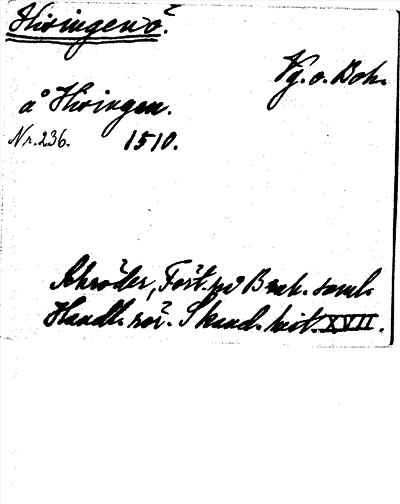 Hisingen ö.
Vg. o. Boh.
å Hisingen.
Nr. 236. 1510.
Schröder, Fört. på Brah. saml.
Handl. rör. Skand. hist. XVII.